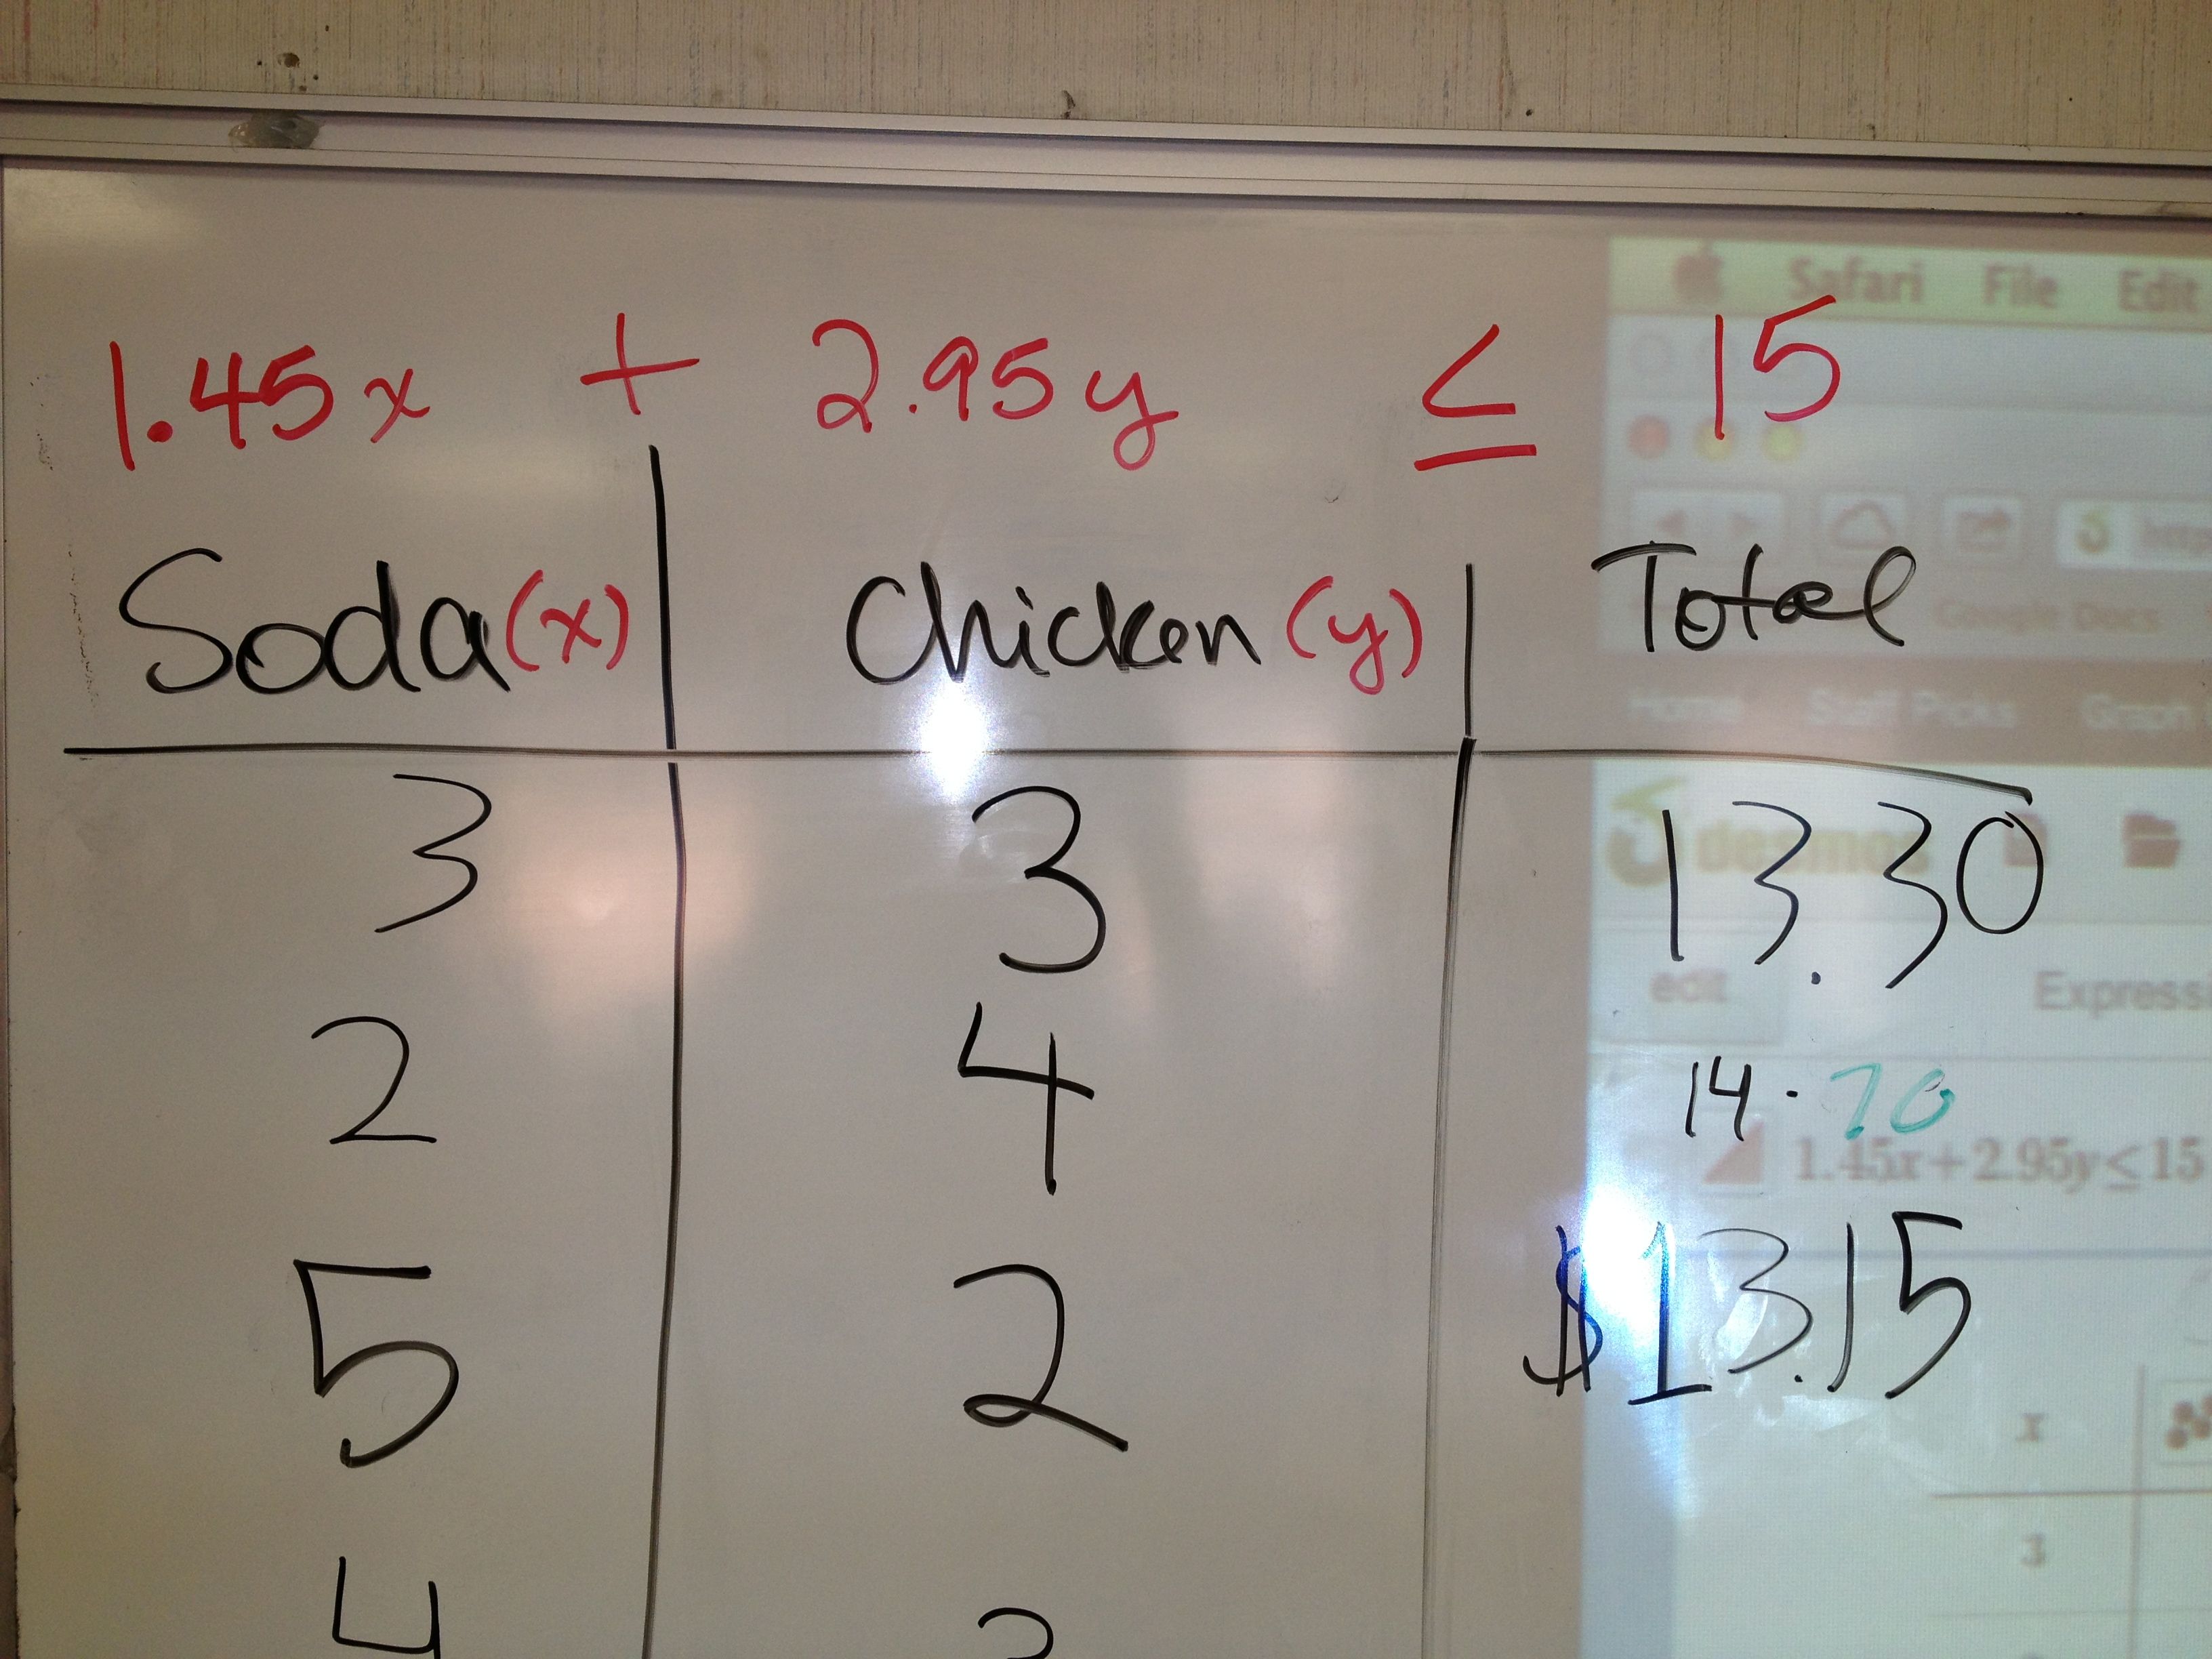 Safari File Edit
1.45x + 2.95y ≤ 15
Soda (x) Chicken (y) Total
Google Docs
Home Staff Picks Graph
3 3 13.30
desmos
edit Express
2 4 14.70
1.45x+2.95y≤15
5 2 $13.15
x
3
4